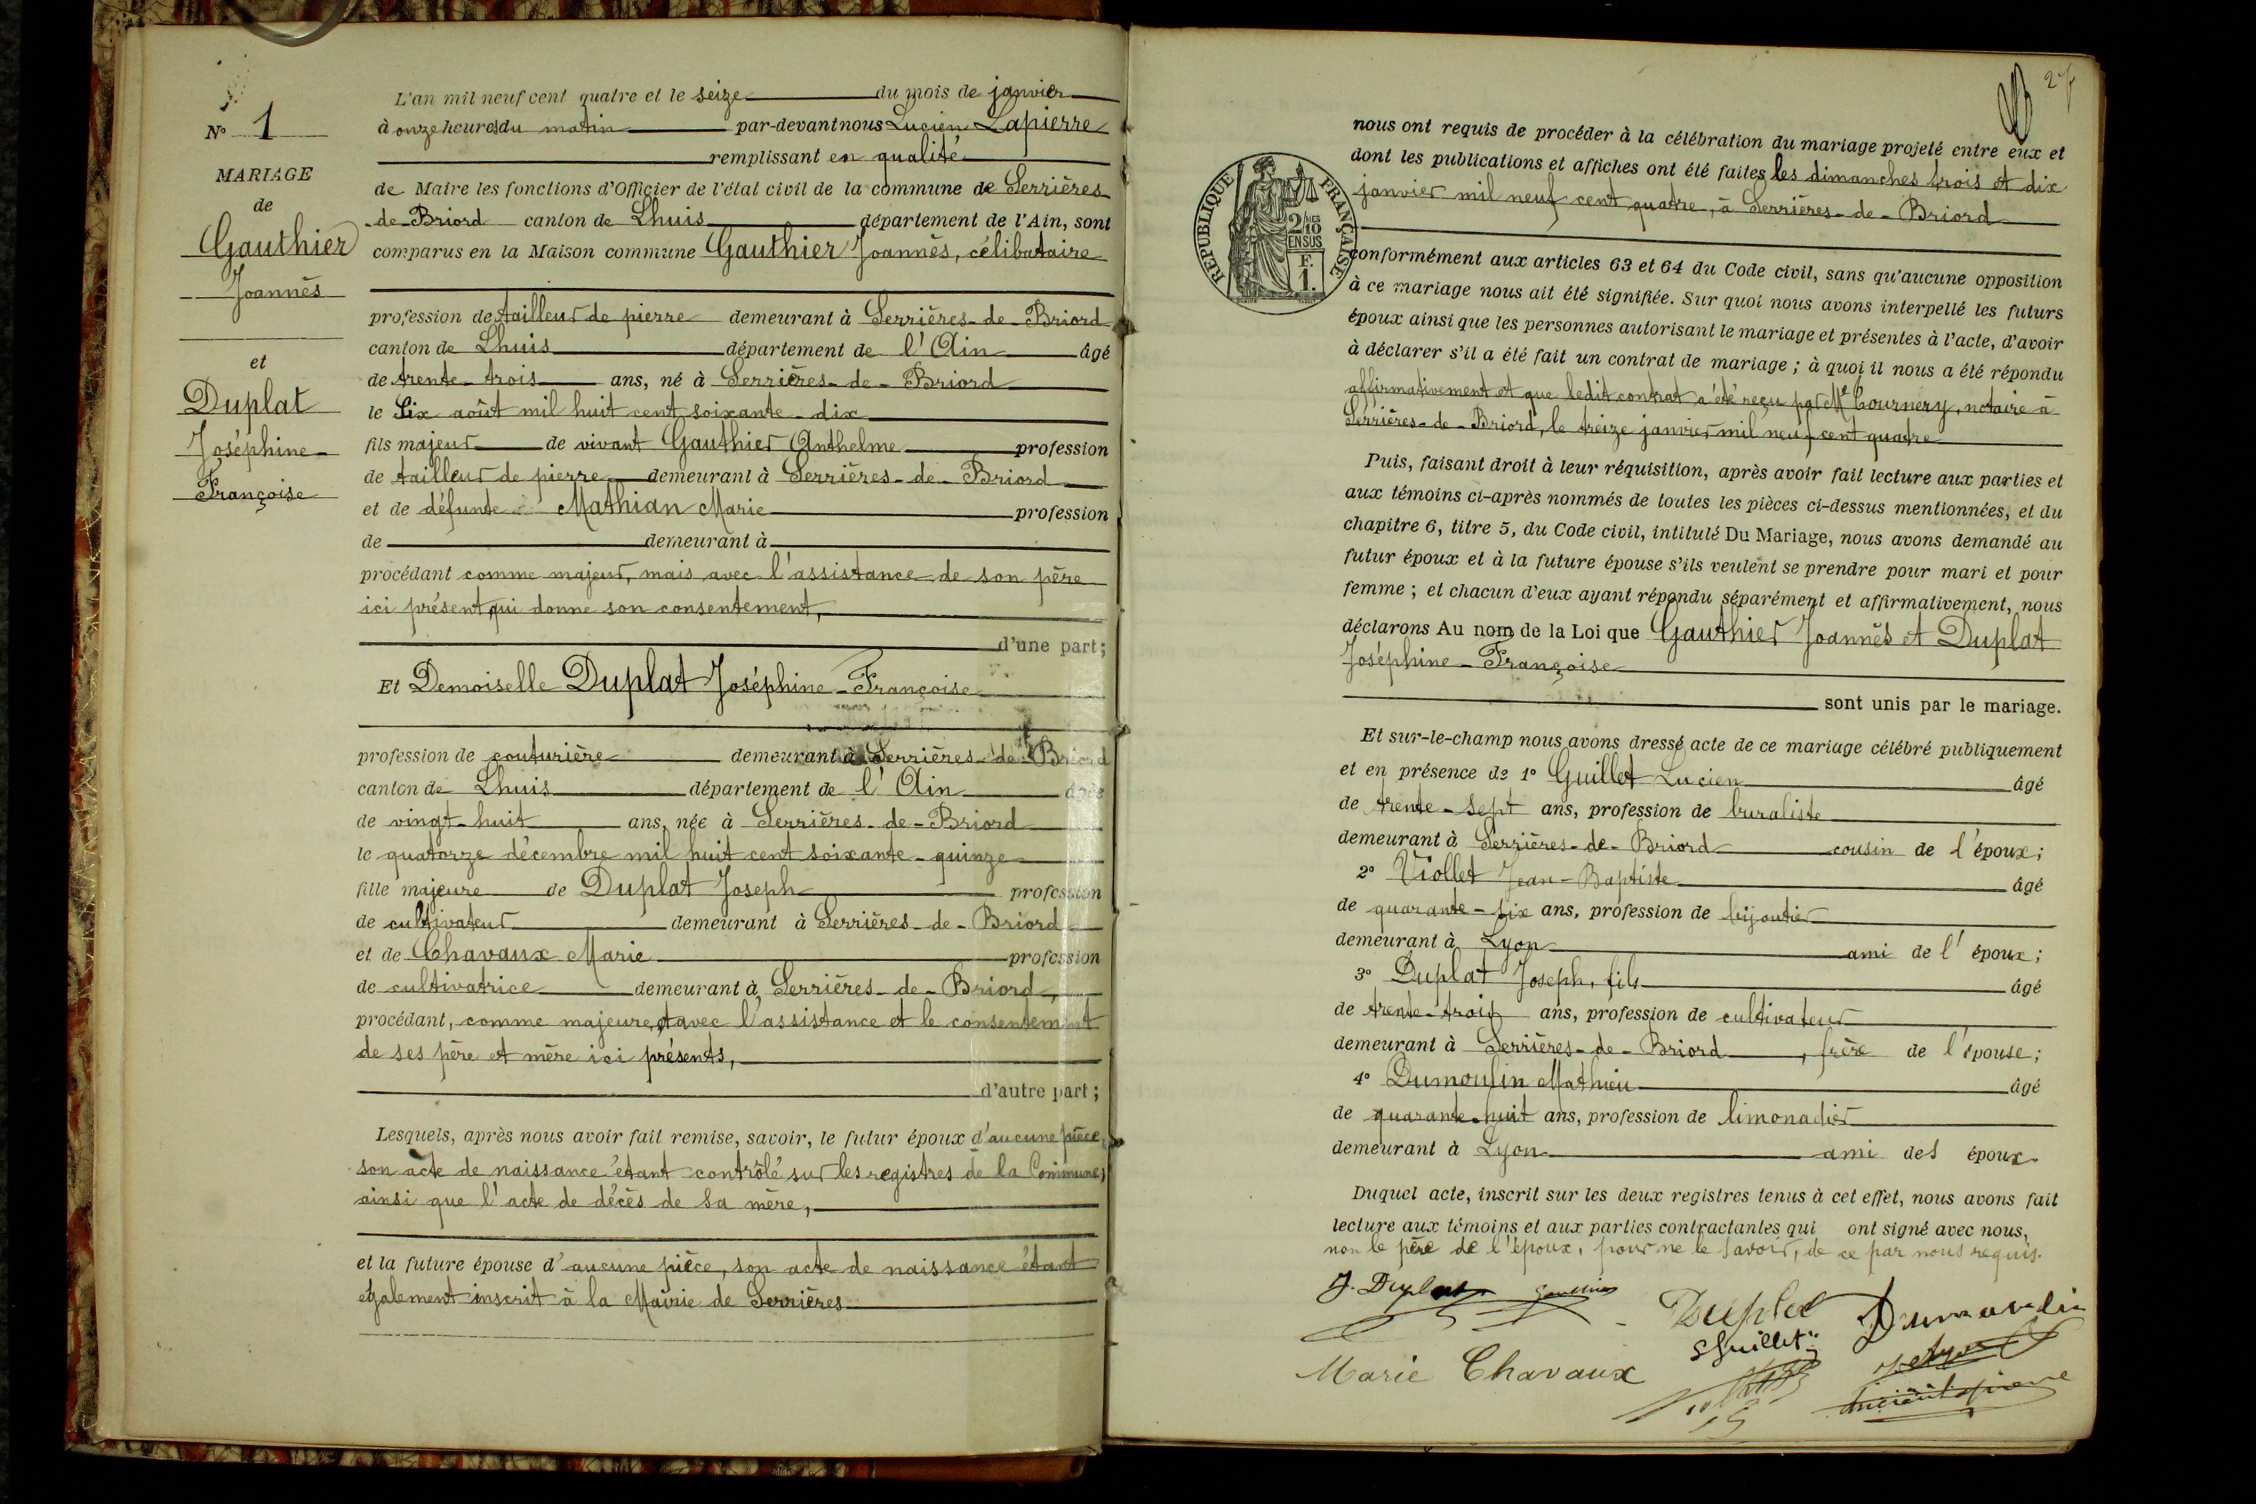 N° 1
MARIAGE
de
Gauthier
Joannès
et
Duplat
Joséphine-
Françoise
L'an mil neuf cent quatre et le seize du mois de janvier
à onze heures du matin par-devant nous Lucien Lapierre
remplissant en qualité
de Maire les fonctions d'Officier de l'état civil de la commune de Serrières
-de-Briord canton de Lhuis département de l'Ain, sont
comparus en la Maison commune Gauthier Joannès, célibataire
profession de tailleur de pierre demeurant à Serrières-de-Briord
canton de Lhuis département de l'Ain âgé
de trente-trois ans, né à Serrières-de-Briord
le six août mil huit cent soixante-dix
fils majeur de vivant Gauthier Anthelme profession
de tailleur de pierre demeurant à Serrières-de-Briord
et de défunte Mathian Marie profession
de demeurant à
procédant comme majeur, mais avec l'assistance de son père
ici présent, qui donne son consentement,
d'une part;
Et Demoiselle Duplat Joséphine-Françoise
profession de couturière demeurant à Serrières-de-Briord
canton de Lhuis département de l'Ain âgée
de vingt-huit ans, née à Serrières-de-Briord
le quatorze décembre mil huit cent soixante-quinze
fille majeure de Duplat Joseph profession
de cultivateur demeurant à Serrières-de-Briord
et de Chavaux Marie profession
de cultivatrice demeurant à Serrières-de-Briord,
procédant, comme majeure, et avec l'assistance et le consentement
de ses père et mère ici présents,
d'autre part;
Lesquels, après nous avoir fait remise, savoir, le futur époux d'aucune pièce,
son acte de naissance étant contrôlé sur les registres de la Commune,
ainsi que l'acte de décès de sa mère,
et la future épouse d'aucune pièce, son acte de naissance étant
également inscrit à la Mairie de Serrières
nous ont requis de procéder à la célébration du mariage projeté entre eux et
dont les publications et affiches ont été faites les dimanches trois et dix
janvier mil neuf cent quatre, à Serrières-de-Briord
RÉPUBLIQUE FRANÇAISE
2/10 EN SUS
F. 1.
conformément aux articles 63 et 64 du Code civil, sans qu'aucune opposition
à ce mariage nous ait été signifiée. Sur quoi nous avons interpellé les futurs
époux ainsi que les personnes autorisant le mariage et présentes à l'acte, d'avoir
à déclarer s'il a été fait un contrat de mariage; à quoi il nous a été répondu
affirmativement et que ledit contrat a été reçu par Me Cournery, notaire à
Serrières-de-Briord, le treize janvier mil neuf cent quatre
Puis, faisant droit à leur réquisition, après avoir fait lecture aux parties et
aux témoins ci-après nommés de toutes les pièces ci-dessus mentionnées, et du
chapitre 6, titre 5, du Code civil, intitulé Du Mariage, nous avons demandé au
futur époux et à la future épouse s'ils veulent se prendre pour mari et pour
femme; et chacun d'eux ayant répondu séparément et affirmativement, nous
déclarons Au nom de la Loi que Gauthier Joannès et Duplat
Joséphine-Françoise
sont unis par le mariage.
Et sur-le-champ nous avons dressé acte de ce mariage célébré publiquement
et en présence de 1° Guillet Lucien âgé
de trente-sept ans, profession de buraliste
demeurant à Serrières-de-Briord cousin de l'époux;
2° Viollet Jean-Baptiste âgé
de quarante-six ans, profession de bijoutier
demeurant à Lyon ami de l'époux;
3° Duplat Joseph, fils âgé
de trente-trois ans, profession de cultivateur
demeurant à Serrières-de-Briord, frère de l'épouse;
4° Dumoulin Mathieu âgé
de quarante-huit ans, profession de limonadier
demeurant à Lyon ami des époux.
Duquel acte, inscrit sur les deux registres tenus à cet effet, nous avons fait
lecture aux témoins et aux parties contractantes qui ont signé avec nous,
non le père de l'époux, pour ne le savoir, de ce par nous requis.
J. Duplat Gauthier Duplat Dumoulin
Guillet
Marie Chavaux